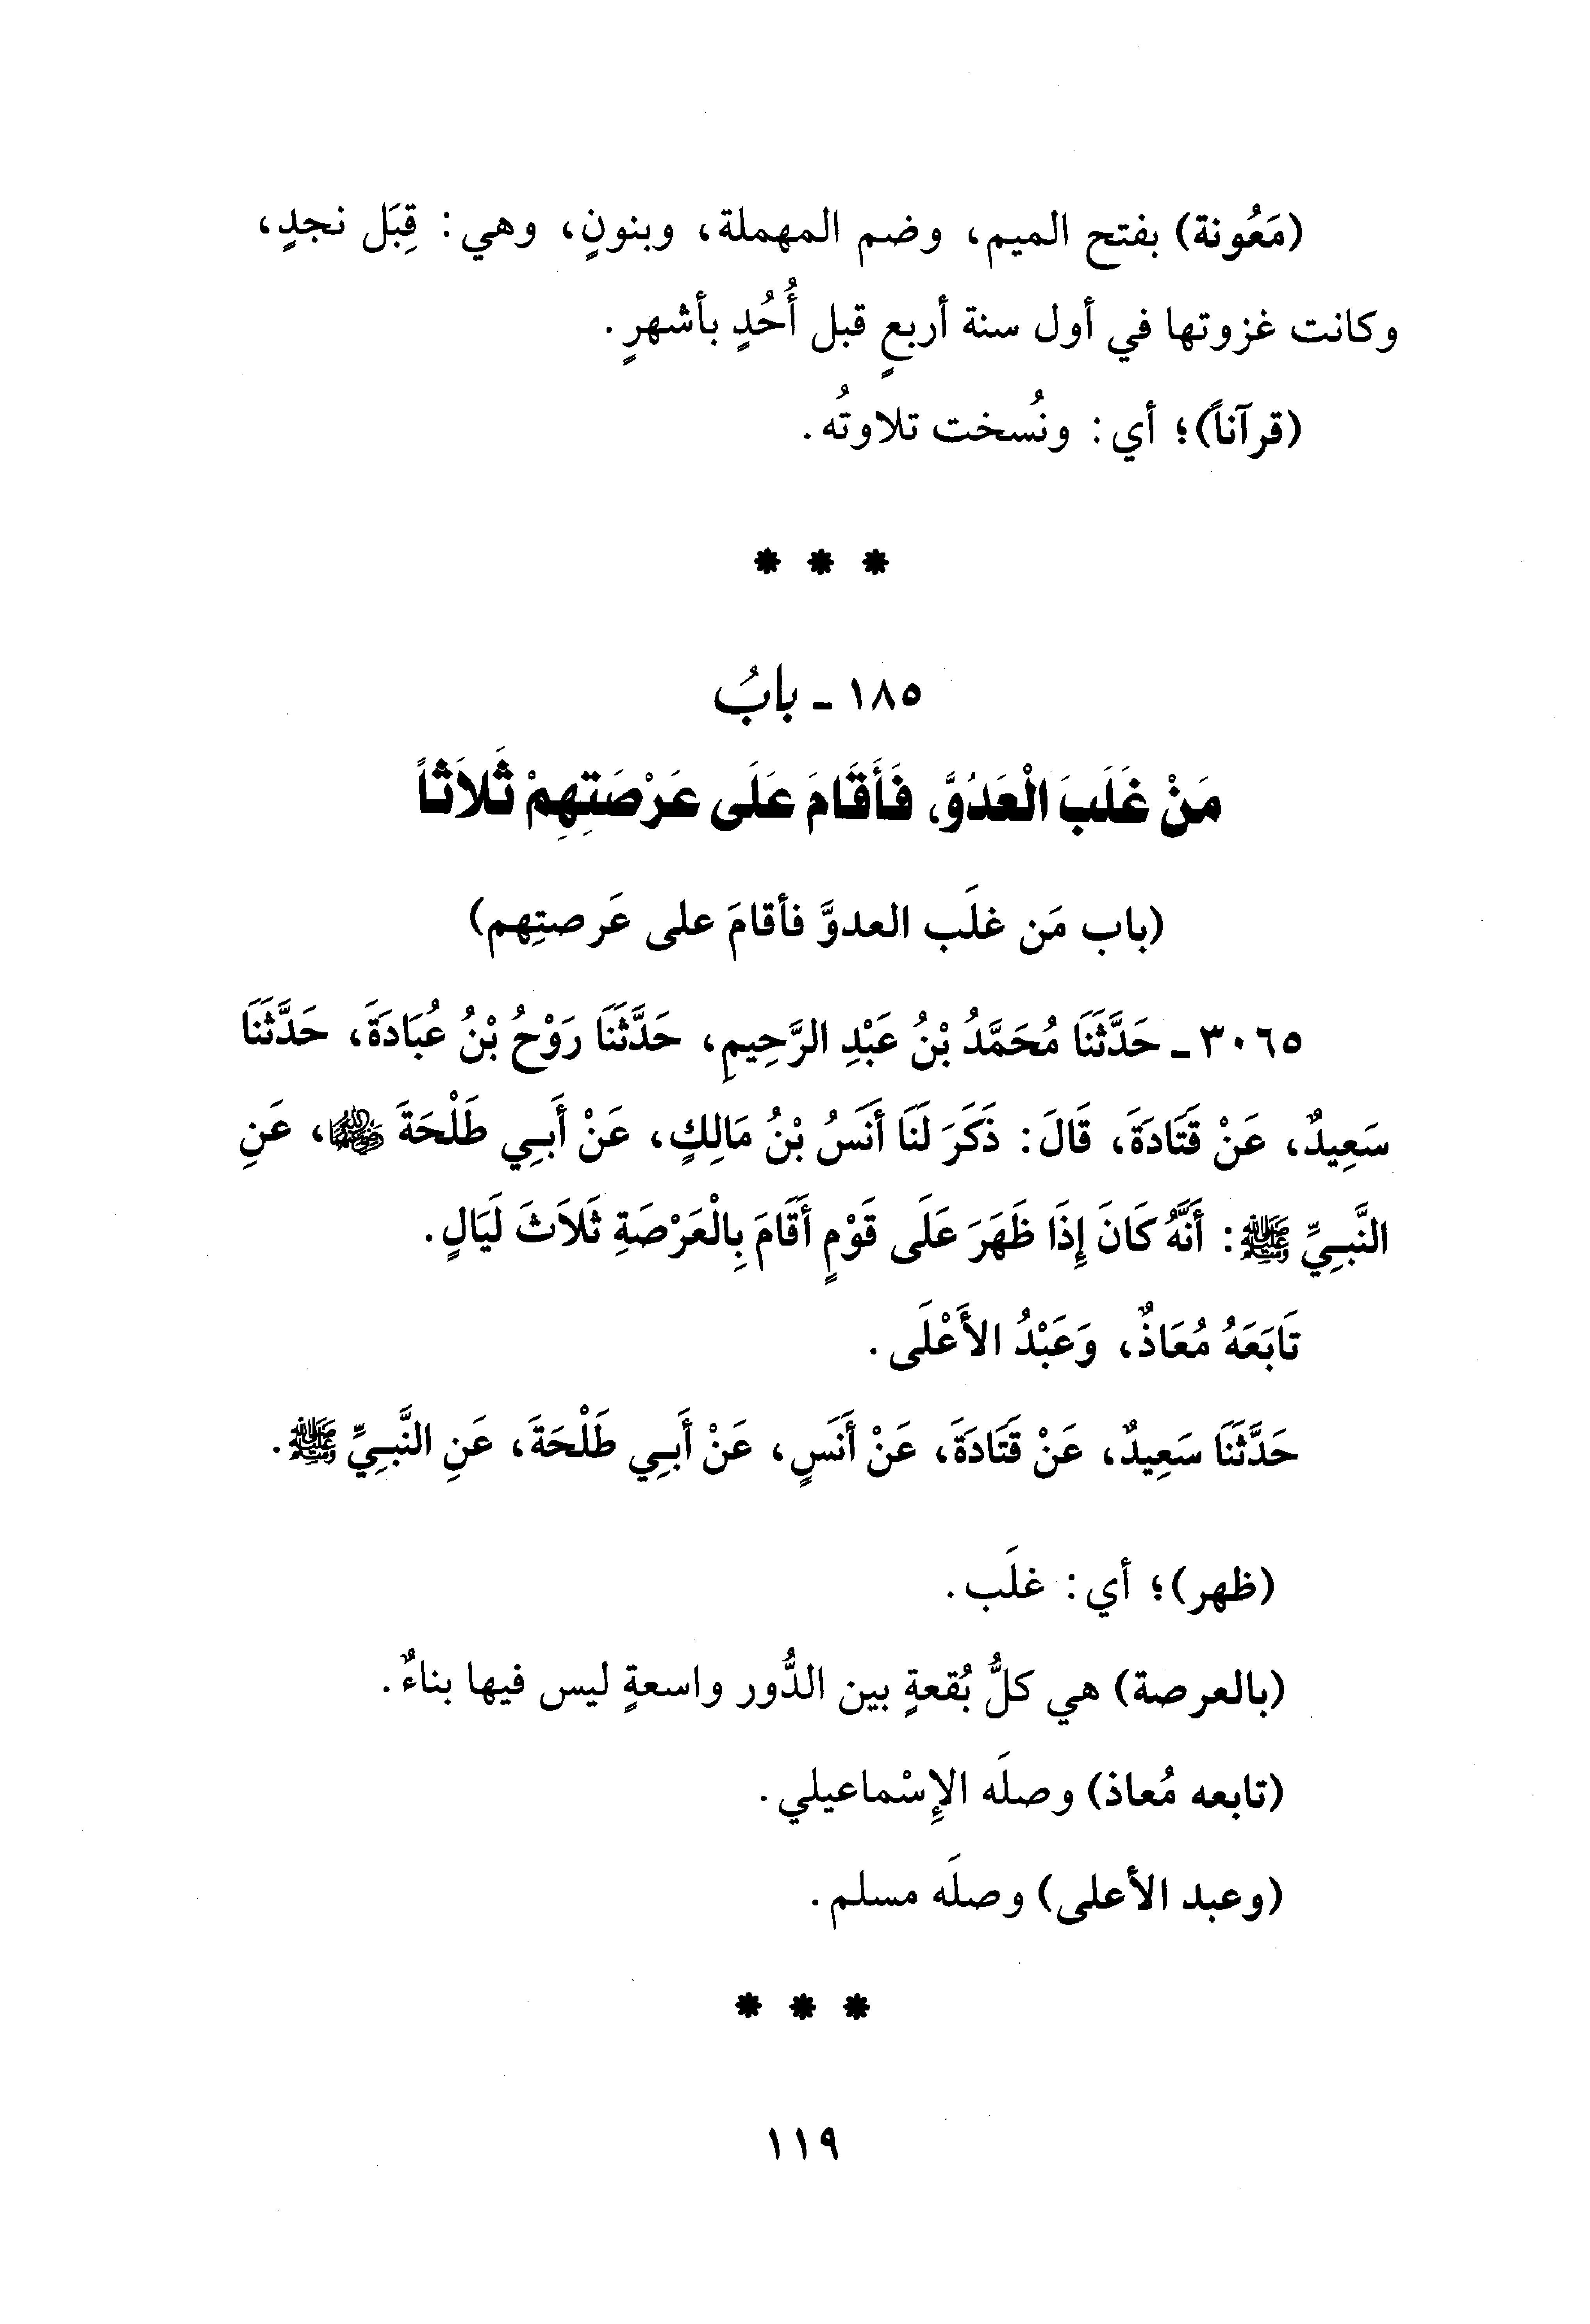 (مَعُونة) بفتح الميم، وضم المهملة، وبنونٍ، وهي: قِبَل نجدٍ،
وكانت غزوتها في أول سنة أربعٍ قبل أُحُدٍ بأشهرٍ.
(قرآناً)؛ أي: ونُسخت تلاوتُه.
* * *
١٨٥ - بابُ
مَنْ غَلَبَ الْعَدُوَّ، فَأَقَامَ عَلَى عَرْصَتِهِمْ ثَلاَثاً
(باب مَن غلَب العدوَّ فأقامَ على عَرصتِهم)
٣٠٦٥ - حَدَّثَنَا مُحَمَّدُ بْنُ عَبْدِ الرَّحِيمِ، حَدَّثَنَا رَوْحُ بْنُ عُبَادَةَ، حَدَّثَنَا
سَعِيدٌ، عَنْ قَتَادَةَ، قَالَ: ذَكَرَ لَنَا أَنَسُ بْنُ مَالِكٍ، عَنْ أَبِي طَلْحَةَ رضي الله عنهما، عَنِ
النَّبِيِّ ﷺ: أَنَّهُ كَانَ إِذَا ظَهَرَ عَلَى قَوْمٍ أَقَامَ بِالْعَرْصَةِ ثَلاَثَ لَيَالٍ.
تَابَعَهُ مُعَاذٌ، وَعَبْدُ الأَعْلَى.
حَدَّثَنَا سَعِيدٌ، عَنْ قَتَادَةَ، عَنْ أَنَسٍ، عَنْ أَبِي طَلْحَةَ، عَنِ النَّبِيِّ ﷺ.
(ظهر)؛ أي: غلَب.
(بالعرصة) هي كلُّ بُقعةٍ بين الدُّور واسعةٍ ليس فيها بناءٌ.
(تابعه مُعاذ) وصلَه الإسْماعيلي.
(وعبد الأعلى) وصلَه مسلم.
* * *
١١٩